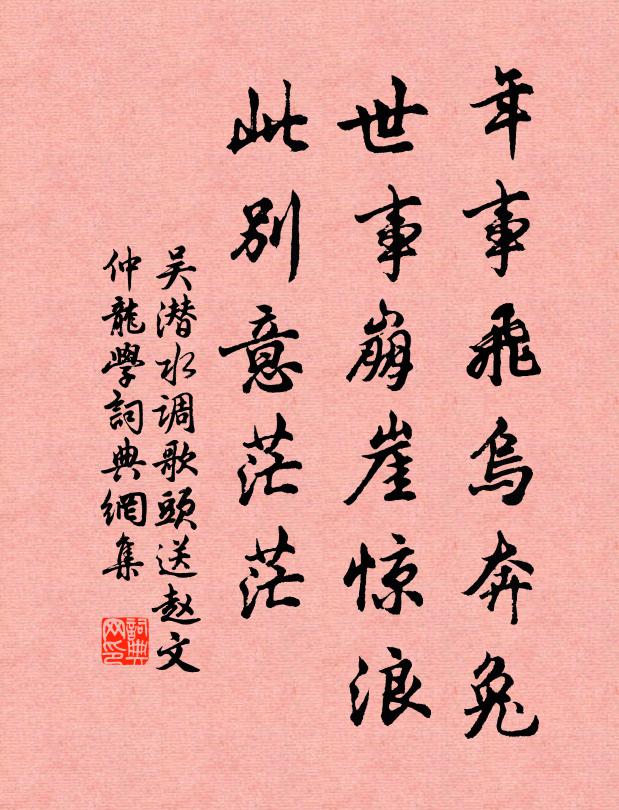 年事飛烏奔兔
世事崩崖惊浪
此別意茫茫
吴潜水调歌頭送赵文
仲龍學詞典網集
詞典网印